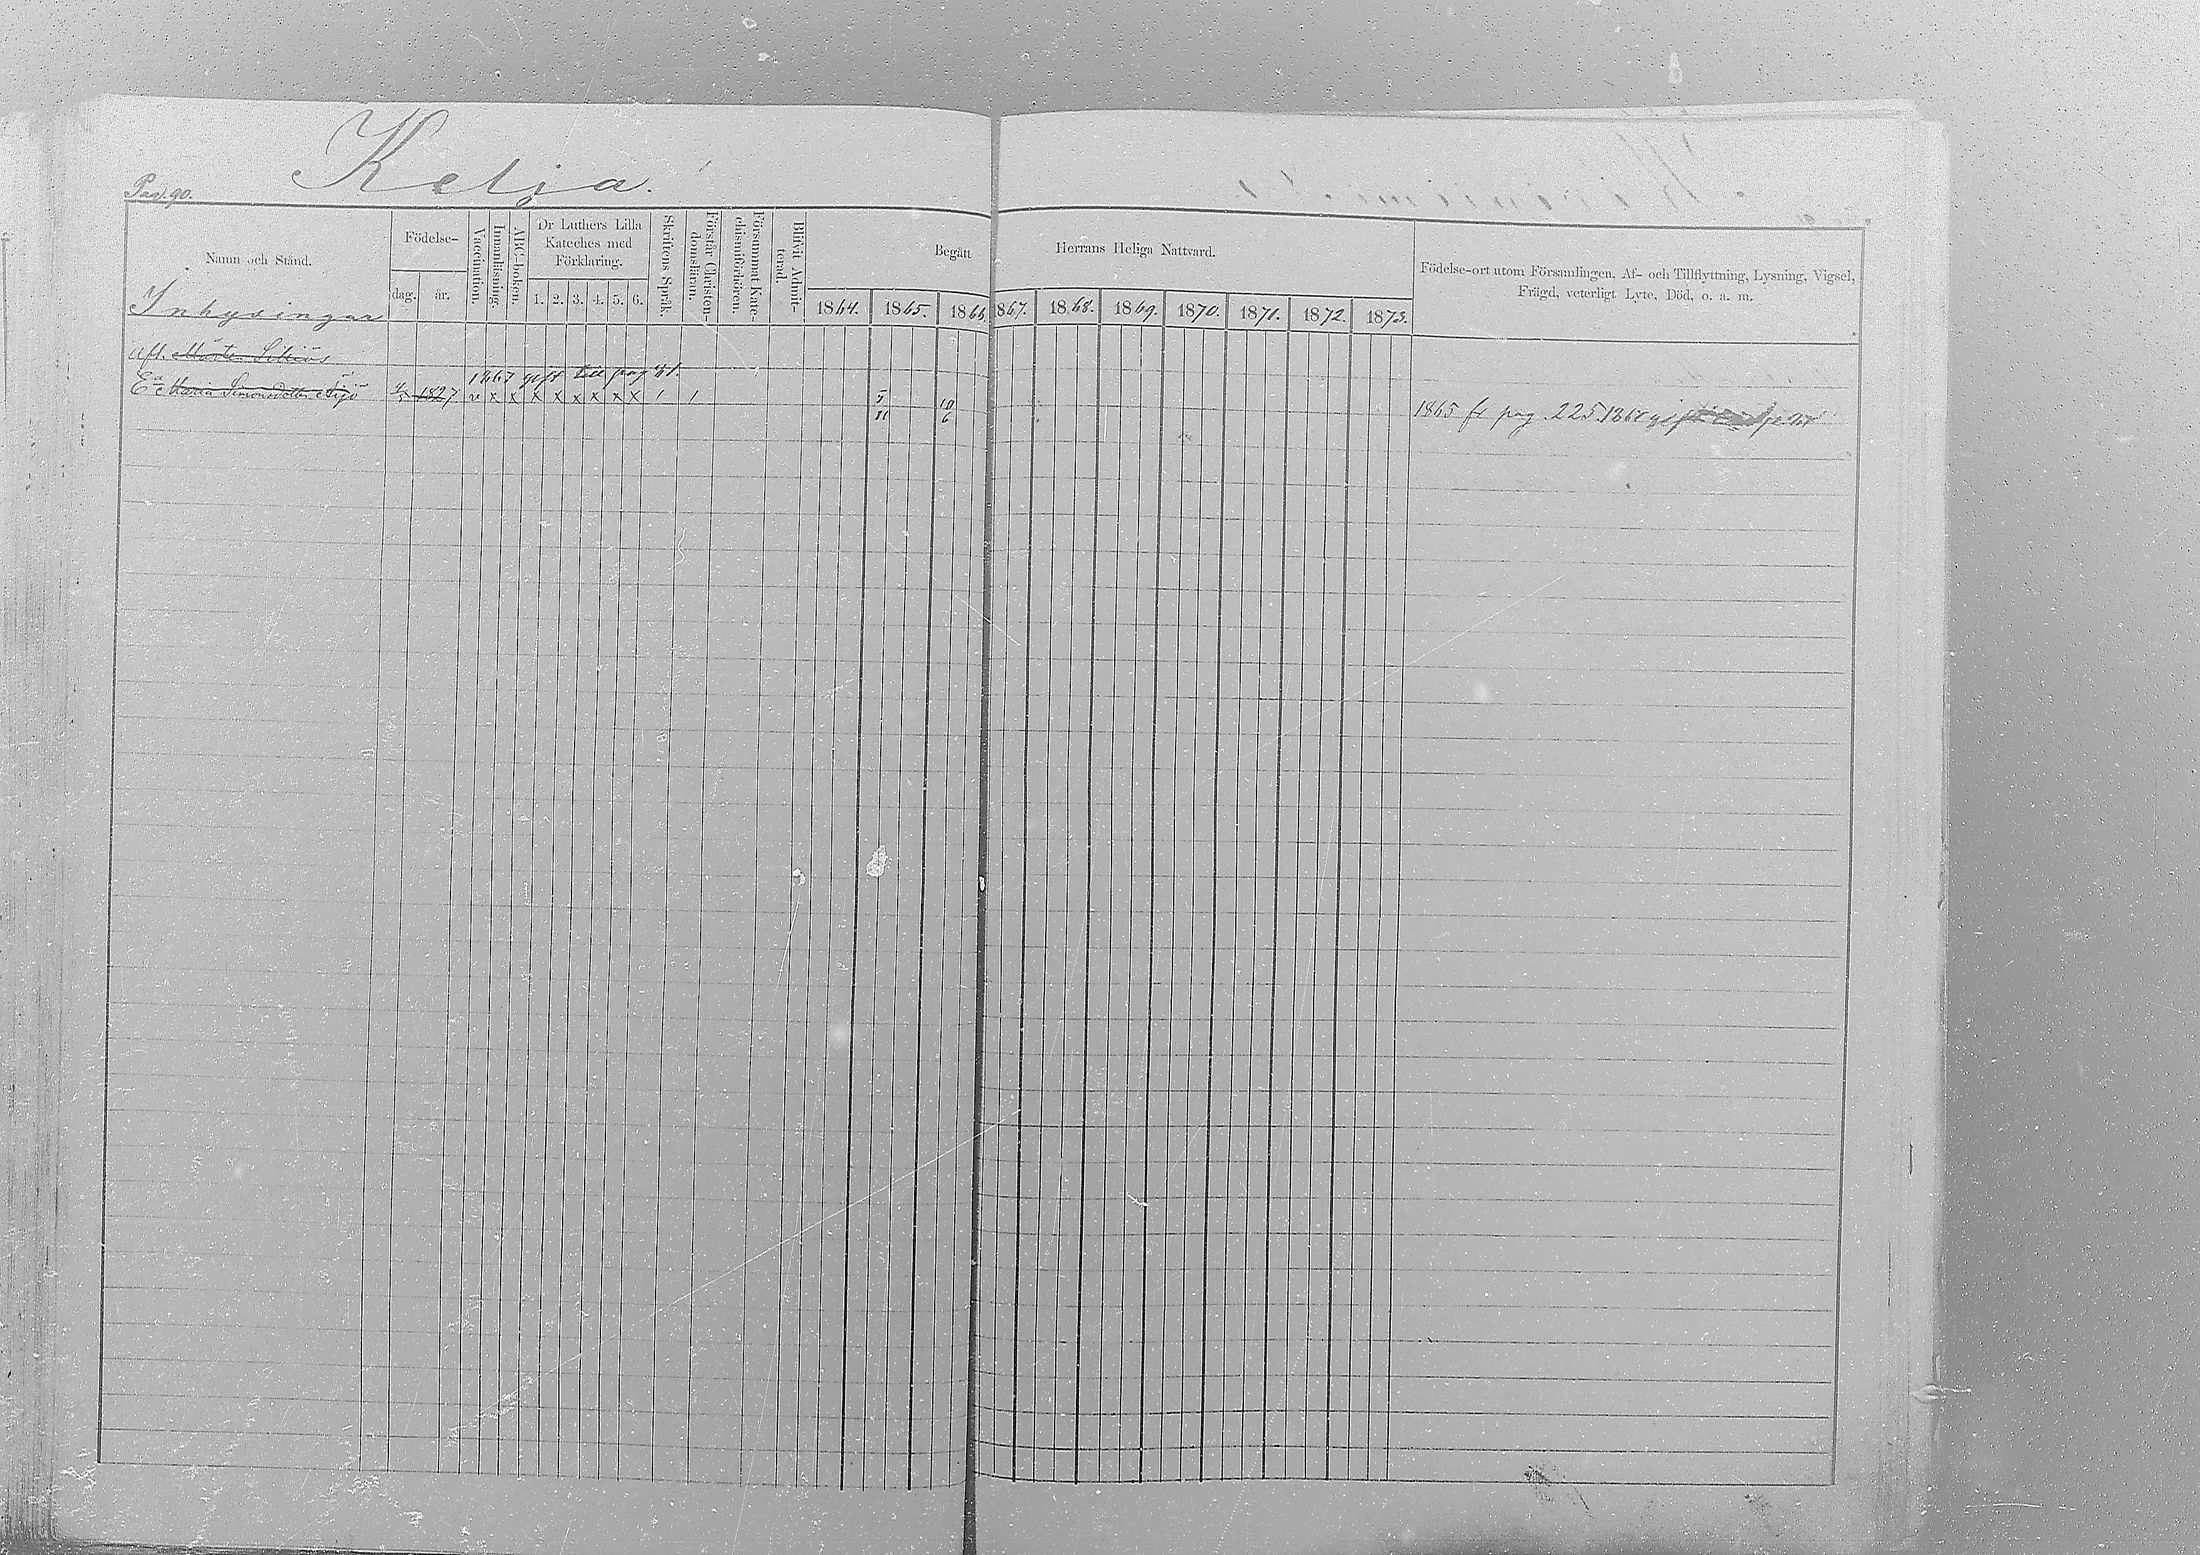 Ketja.
Pag. 90.
Namn och Stånd.
Födelse-
dag.
år.
Vaccination.
Innanläsning.
ABC-boken.
Dr Luthers Lilla
Kateches med
Förklaring.
1. 2. 3. 4. 5. 6.
Skriftens Språk.
Förstår Christen-
domsläran.
Försummat Kate-
chismiförhören.
Blifvit Admit-
terad.
Begått Herrans Heliga Nattvard.
1864. 1865. 1866. 1867. 1868. 1869. 1870. 1871. 1872. 1873.
Födelse-ort utom Församlingen, Af- och Tillflyttning, Lysning, Vigsel,
Frägd, veterligt Lyte, Död, o. a. m.
Inhysingar
Afl.
1867 gift till pag
Maria Simonsdotter 1827 v x x x x x x x x 1 1
1865 fr pag. 225